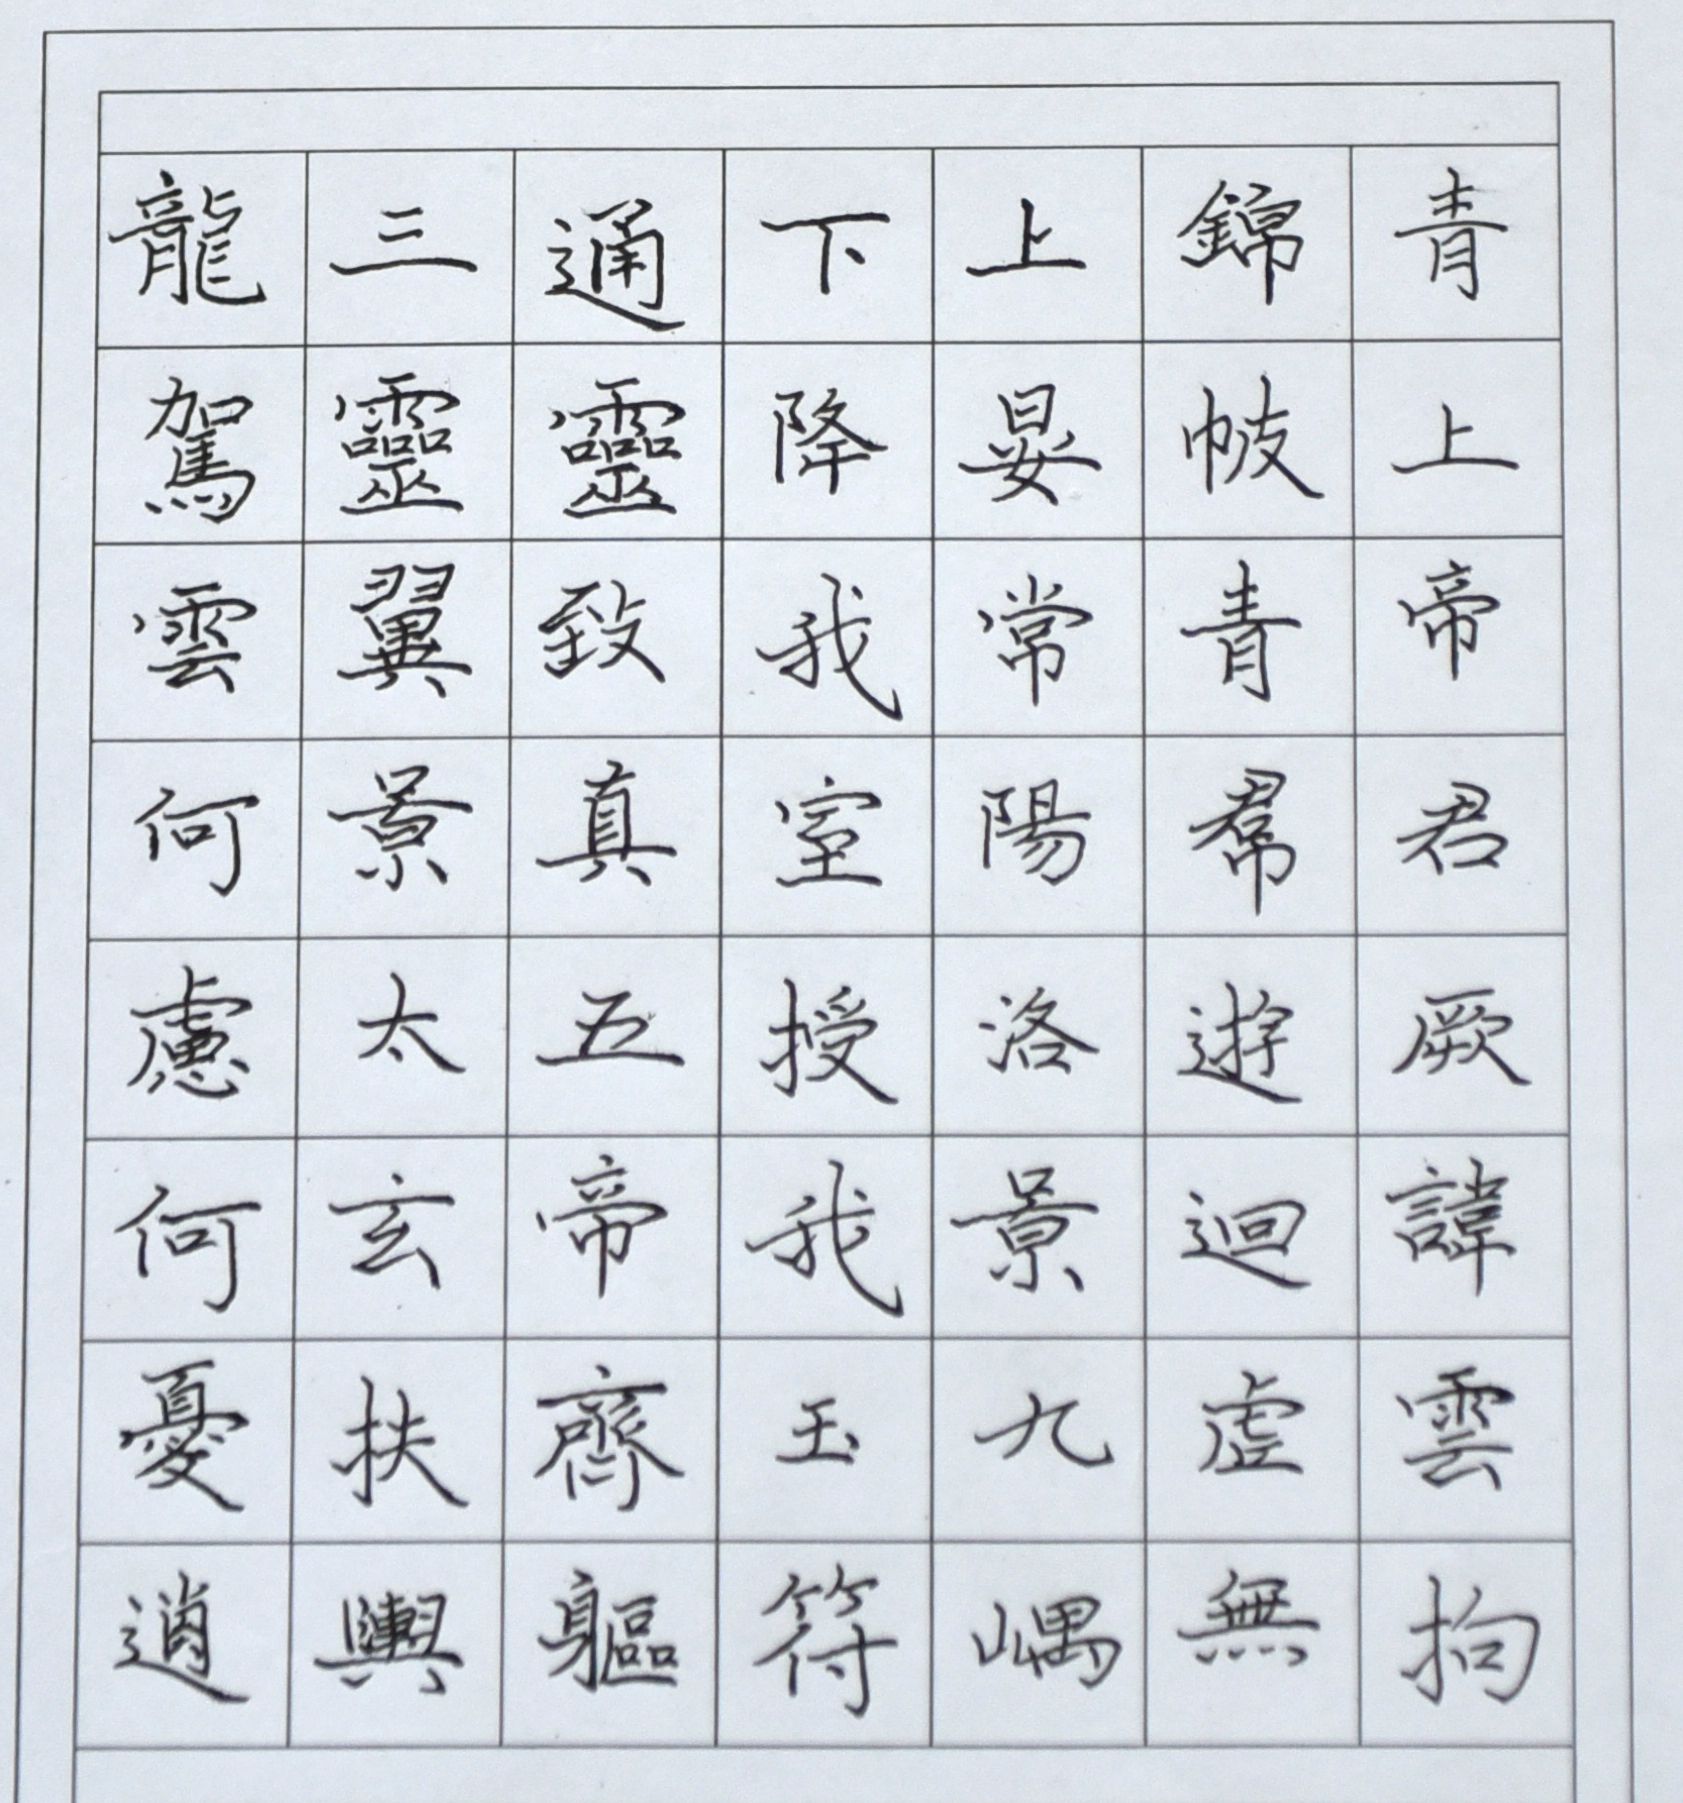 青上帝君厥諱雲拘
錦帔青帬遊迴虛無
上晏常陽洛景九嵎
下降我室授我玉符
通靈致真五帝齊軀
三靈翼景太玄扶輿
龍駕雲何慮何憂逍